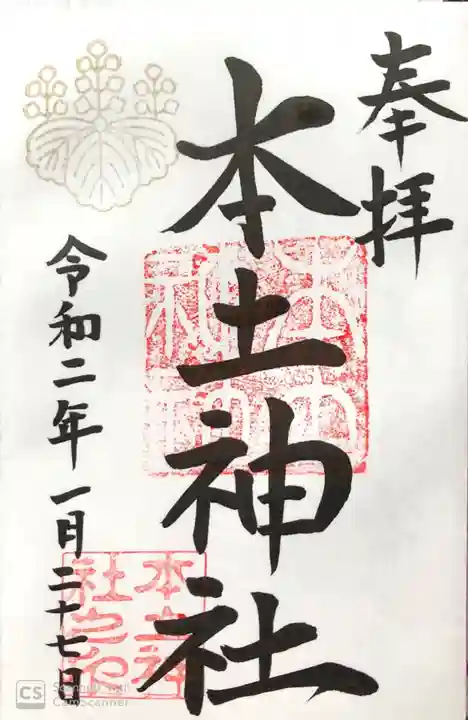 奉拝
本土神社
令和二年一月二十七日
本土神
社之印
CS
Scanned with
Camscanner